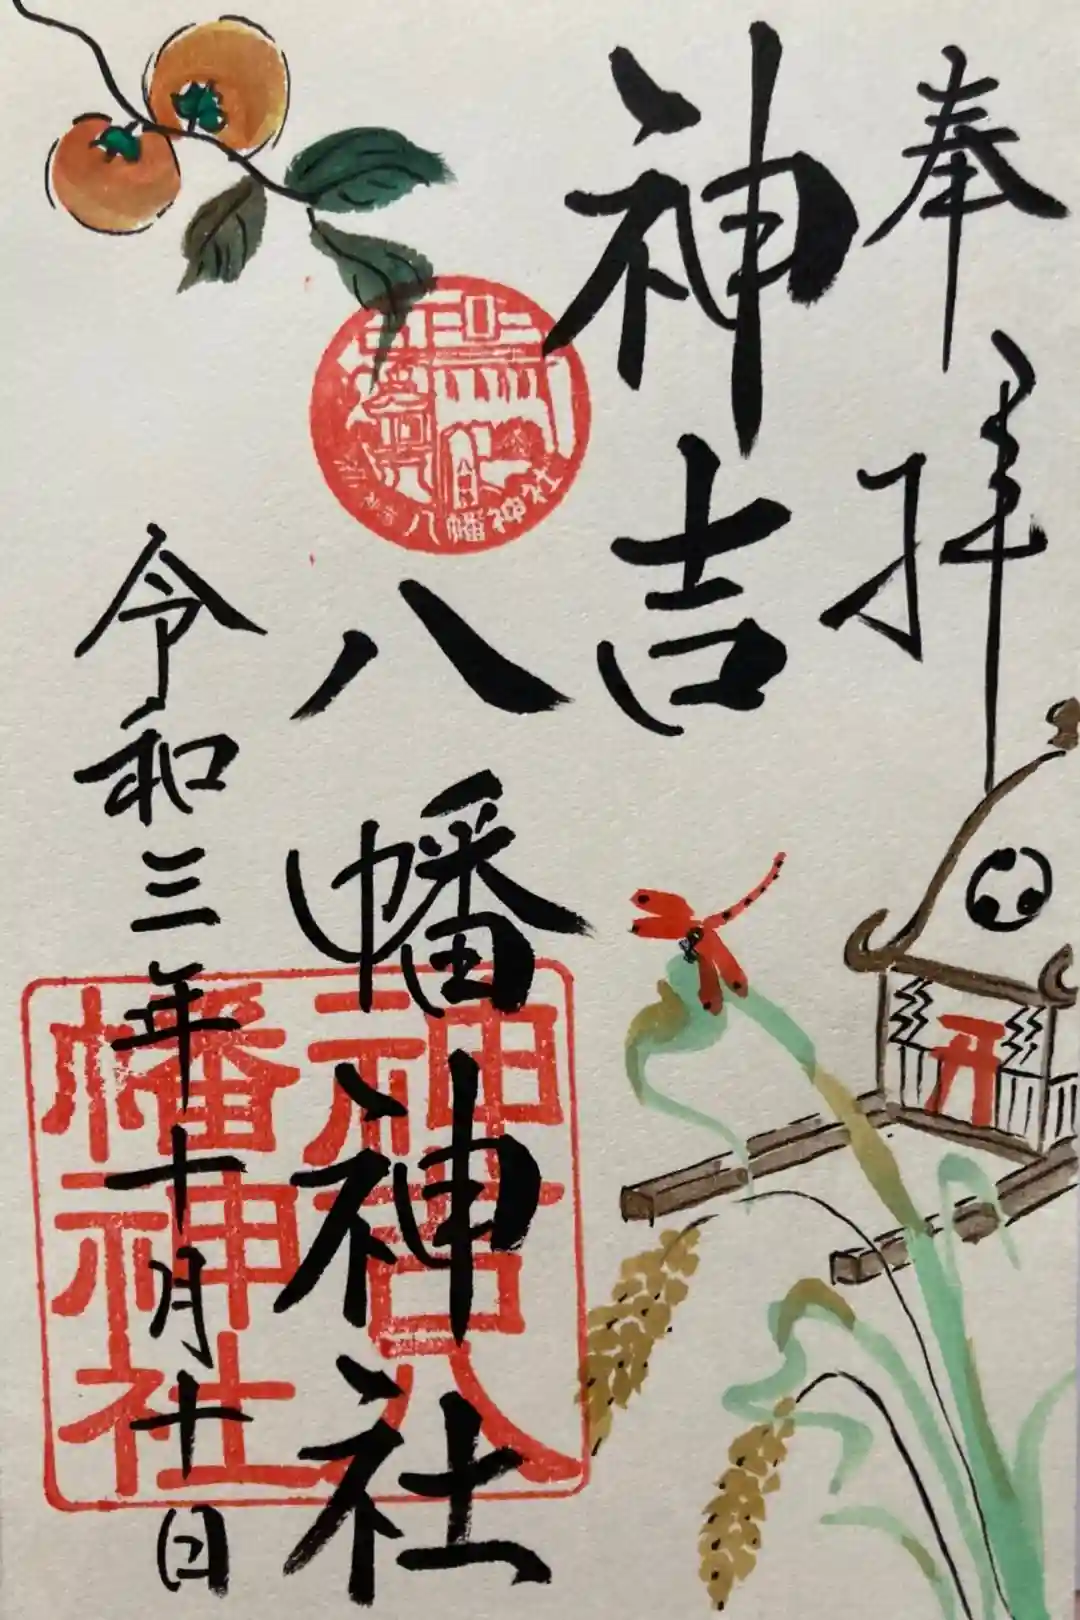 奉拝
神吉
八幡神社
令和三年十月十日
八幡神社
神吉八
幡神社